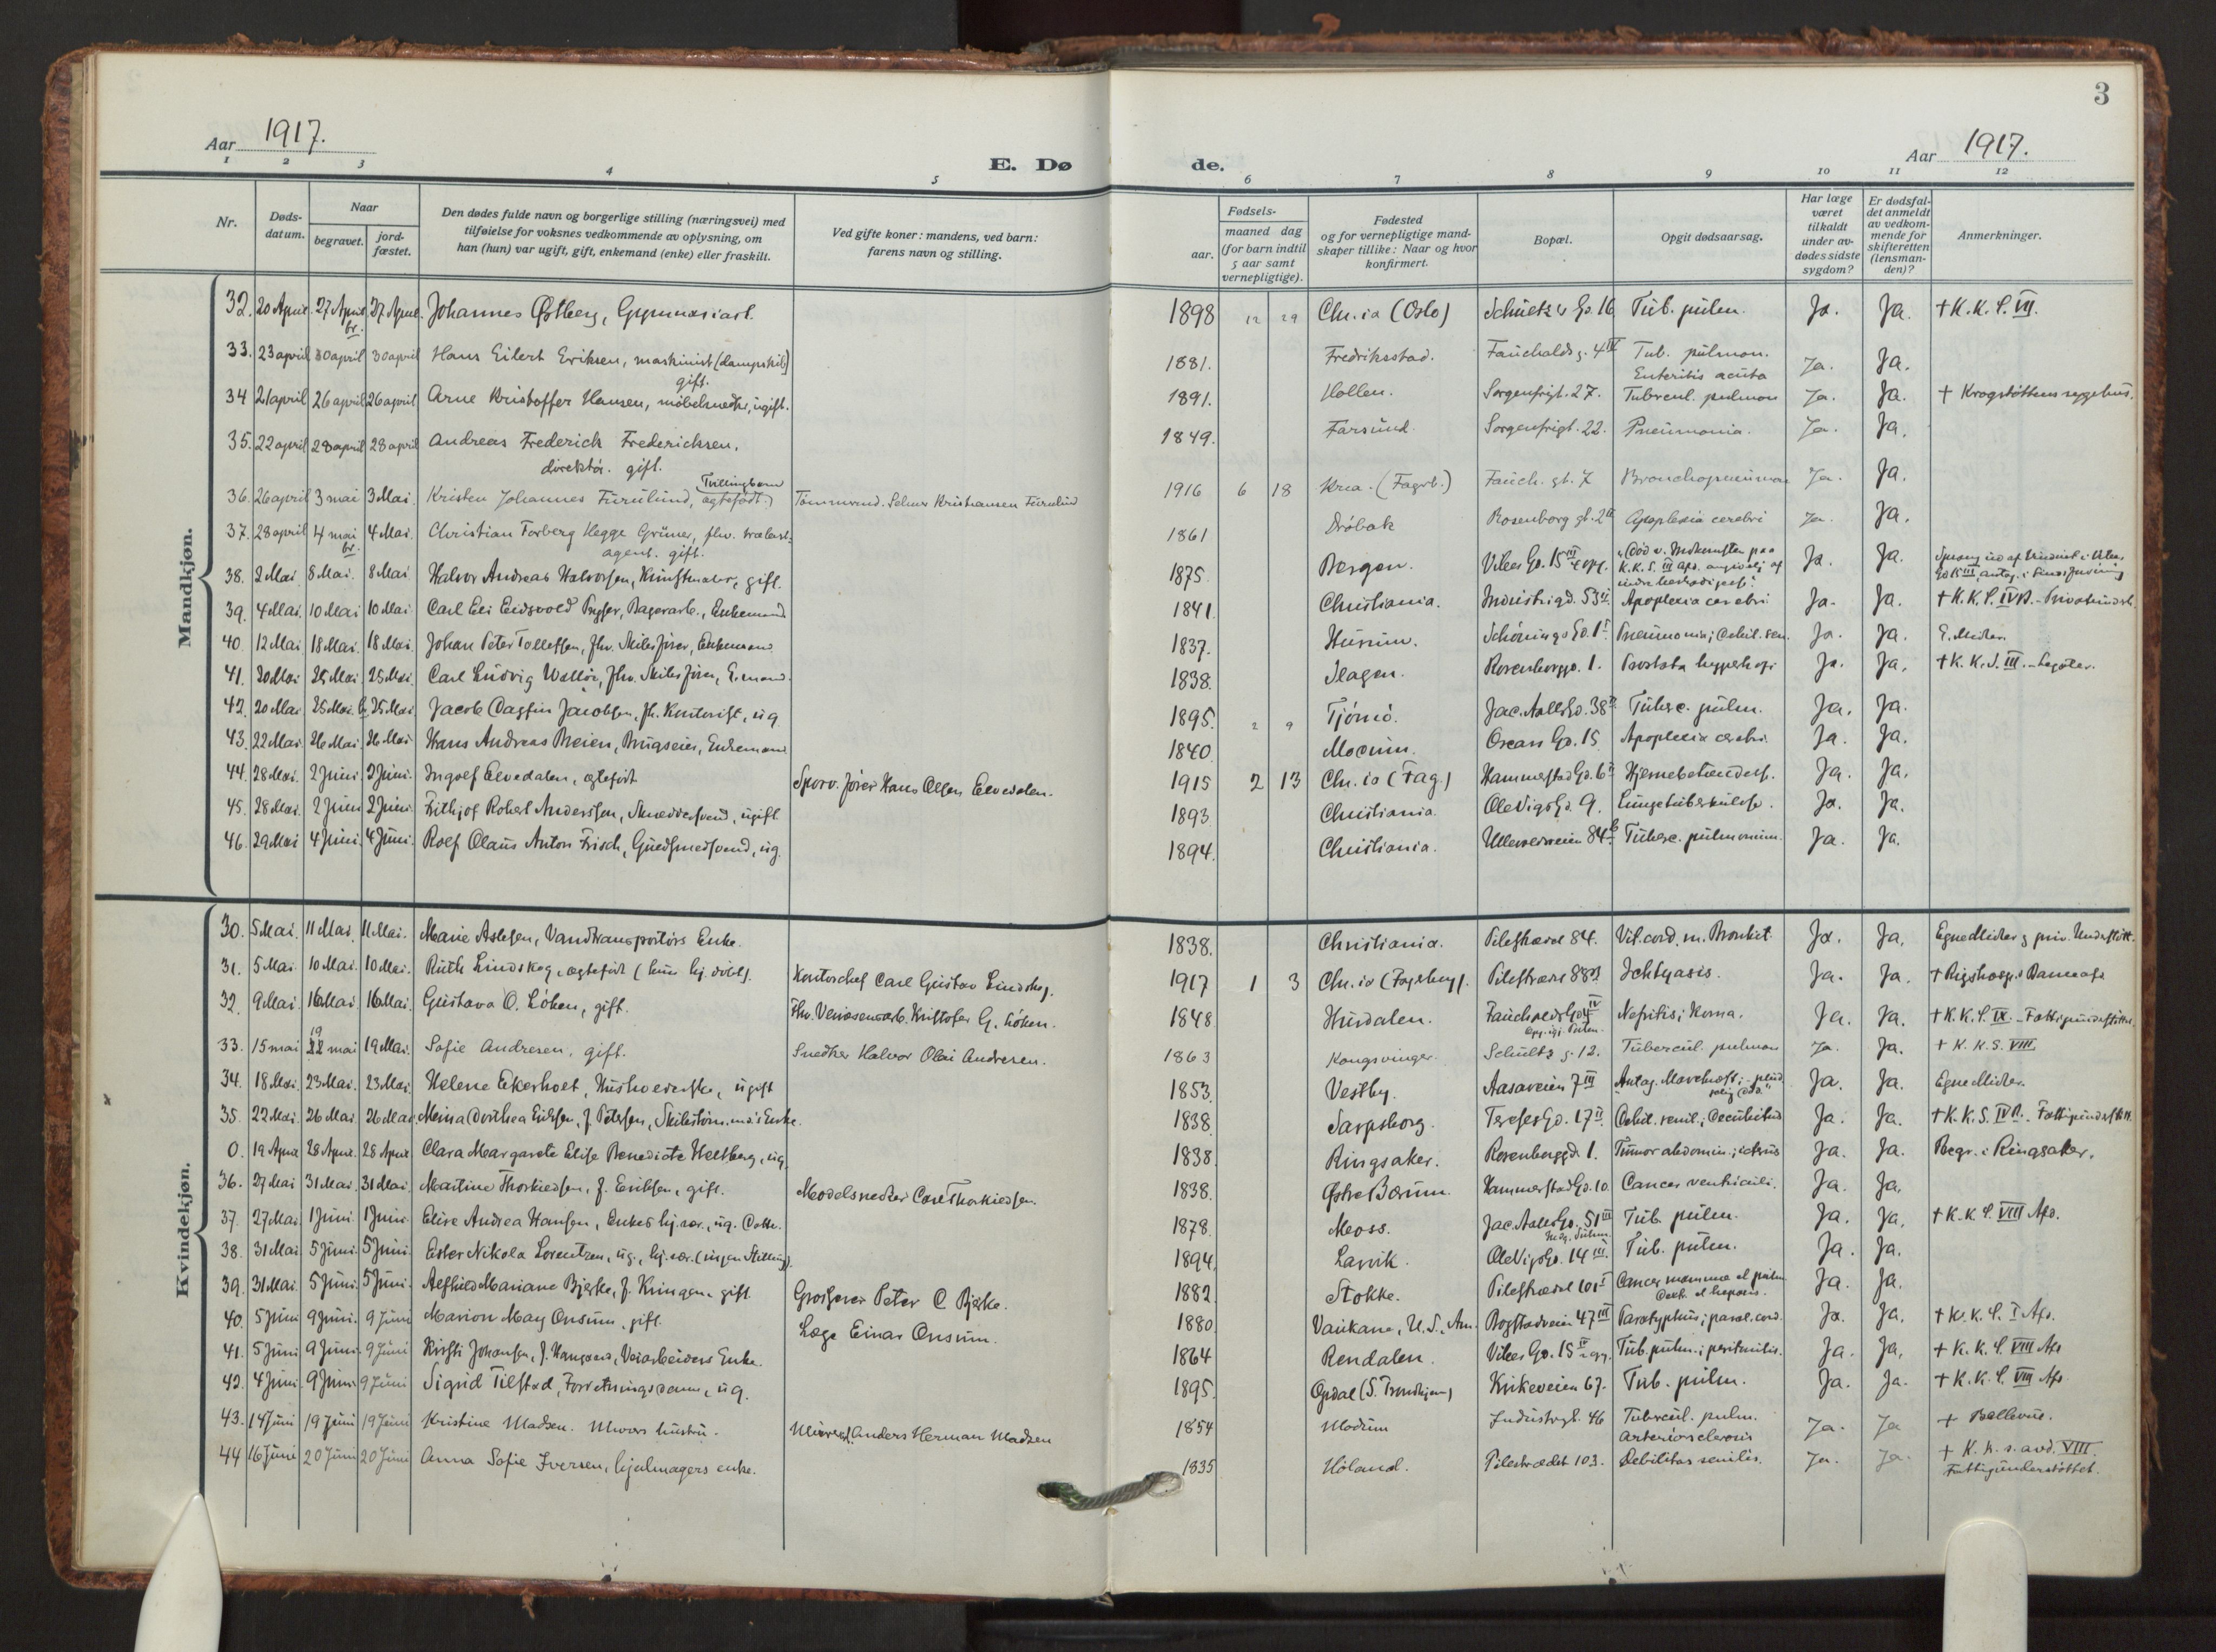 3
Aar 1917.
Aar 1917.
E. Dø de.
1 2 3 4 5 6 7 8 9 10 11 12
Nr.
Døds-
datum.
Naar
begravet.
jord-
fæstet.
Den dødes fulde navn og borgerlige stilling (næringsvei) med
tilføielse for voksnes vedkommende av oplysning, om
han (hun) var ugift, gift, enkemand (enke) eller fraskilt.
Ved gifte koner: mandens, ved barn:
farens navn og stilling.
Fødsels-
aar.
maaned dag
(for barn indtil
5 aar samt
vernepligtige).
Fødested
og for vernepligtige mand-
skaper tillike: Naar og hvor
konfirmert.
Bopæl.
Opgit dødsaarsag.
Har læge
været
tilkaldt
under av-
dødes sidste
sygdom?
Er dødsfal-
det anmeldt
av vedkom-
mende for
skifteretten
(lensman-
den)?
Anmerkninger.
Mandkjøn.
32. 20 April 27 April br. 27 April Johannes Østberg, Gymnasiast. 1898 12 29 Chr.ia (Oslo) Schultz's Gd. 16 Tub. pulm. Ja. Ja. + K. K. S. VII.
33. 23 april 30 april 30 april Hans Eilert Eriksen, maskinist (dampskib) gift. 1881. Fredriksstad. Fauchalds g. 4 IV Tub. pulmon. Enteritis acuta Ja. Ja.
34 21 april 26 april 26 april Arne Kristoffer Hansen, møbelsnedker, ugift. 1891. Hollen. Sorgenfrigt. 27. Tubercul. pulmon Ja. Ja. + Krogstøttens sygehus.
35. 22 april 28 april 28 april Andreas Frederich Frederichsen, direktør. gift. 1849. Farsund. Sorgenfrigt. 22. Pneumonia. Ja. Ja.
36. 26 april 3 mai 3 Mai. Kristen Johannes Furulund, Tvillingbarn ægtefødt. Tømmermd. Selmer Kristiansen Furulund 1916 6 18 Kria. (Fagerb.) Fauch. gt. 7 Bronchopneumoni Ja. Ja.
37. 28 april 4 mai br. 4 Mai. Christian Torberg Hegge Grüner, fhv. trælast-agent. gift. 1861 Drøbak Rosenborg gt. 2 III Apoplexia cerebri Ja. Ja.
38. 2 Mai 8 Mai. 8 Mai. Halvor Andreas Halvorsen, Kunstmaler, gift. 1875. Bergen. Vibes Gd. 15 III "Død v. Indkomsten paa K.K.S. III afd. Ja. Ja. Sprang ud af Vinduet i Vibes Gd 15 III, antag. i Sindsforvirring
39. 4 Mai 10 Mai 10 Mai. Carl Eli Eidsvold, Enkemand 1841. Christiania. Industrigd. 53 II. Apoplexia cerebri Ja. Ja. + K. K. S. IV B.
40. 12 Mai 18 Mai. 18 Mai. Johan Peter Tollefsen, fhv. Skibsfører, Enkemand 1837. Hurum. Schønings Gd. 1 I Pneumonia; Debil. sen. Ja. Ja. E. Midler.
41. 20 Mai 25 Mai 25 Mai. Carl Ludvig Wallör, fhv. Skibsfører, E.mand. 1838. Slagen. Rosenborggd. 1. Prostata hypertrofi Ja. Ja. + K. K. S. III. - Legater.
42. 20 Mai. 25 Mai. br 25 Mai Jacob Dagfin Jacobsen, fh. Kontorist, ug. 1895. 2 9 Tjömö. Jac. Aalls Gd. 38 Tuberc. pulm. Ja. Ja.
43. 22 Mai. 26 Mai. 26 Mai. Hans Andreas Breien, Brugseier, Enkemand 1840. Modum. Oscars Gd. 15 Apoplexia cerebri. Ja. Ja.
44. 28 Mai. 2 Juni. 2 Juni. Ingolf Elvedalen, ægtefødt Sporv. fører Hans Olsen Elvedalen. 1915 2 13 Chr.ia (Fag.) Hammerstad Gd. 6 Hjernebetændelse. Ja. Ja.
45. 28 Mai. 2 Juni 2 Juni. Frithjof Robert Anderssen, Snedkersvend, ugift 1893. Christiania. Ole Vigs Gd. 9. Lungetuberkulose. Ja. Ja.
46. 29 Mai 4 Juni. 4 Juni. Rolf Olaus Anton Frisch, Guldsmedsvend, ug. 1894. Christiania. Ullevoldsveien 84 b Tuberc. pulmonum. Ja. Ja.
Kvindekjøn.
30. 5 Mai. 11 Mai. 11 Mai. Marie Aslesen, Vandtransportørs Enke. 1838. Christiania. Pilestræd 84. Vit. cord. m. Bronkit. Ja. Ja. Egne Midler og priv. Understøtt.
31. 5 Mai. 10 Mai. 10 Mai. Ruth Lindskog, ægtefødt (kun hj. døbt). Kontorchef Carl Gustav Lindskog. 1917 1 3 Chr.ia (Fagerborg). Pilestræd 88 B Ichtyosis. Ja. Ja. + Rigshosp. Barneafd
32. 9 Mai. 16 Mai. 16 Mai. Gustava O. Löken, gift. Fhv. Veivæsenarb. Kristofer G. Löken. 1848. Hurdalen. Fauchalds Gd 4 IV Nefritis; Koma. Ja. Ja. + K. K. S. IX. - Fattigunderstøttet.
33. 15 mai 19 22 mai 19 Mai. Sofie Andresen, gift. Snedker Halvor Olai Andresen. 1863 Kongsvinger. Schultz g. 12. Tubercul. pulmon Ja. Ja. + K. K. S. VIII.
34. 18 Mai. 23 Mai. 23 Mai. Helene Ekerholt, Husholderske, ugift 1853. Vestby. Aasaveien 7 III Antag. Ja. Ja. Egne Midler.
35. 22 Mai. 26 Mai. 26 Mai. Meina Dorthea Eilifsen, f. Petersen, Skibstømm.md's Enke. 1838. Sarpsborg. Tereses Gd. 17 II. Debil. senil.; Decubitus Ja. Ja. + K. K. S. IV B. Fattigunderstøtt.
0. 19 April 28 April. 28 April Clara Margarete Elise Benedicte Heltberg, ug. 1838. Ringsaker. Rosenborggd. 1. Tumor abdomin.; icterus Ja. Ja. Begr. i Ringsaker.
36. 27 Mai 31 Mai. 31 Mai. Martine Thorkildsen, f. Eriksen, gift. Modelsnedker Carl Thorkildsen. 1838. Østre Bærum. Hammerstad Gd. 10. Cancer ventriculi. Ja. Ja.
37. 27 Mai. 1 Juni. 1 Juni. Elise Andrea Hansen, Enkes hj.vær., ug. Datter. 1878. Moss. Jac. Aalls Gd. 51 III Tub. pulm. Ja. Ja. + K. K. S. VIII Afd.
38. 31 Mai 5 Juni. 5 Juni. Ester Nikola Lorentzen, ug., hj.vær. (ingen Stilling). 1894. Larvik. Ole Vigs Gd. 14 III. Tub. pulm. Ja. Ja.
39. 31 Mai. 5 Juni. 5 Juni. Alfhild Mariane Bjerke, f. Kringen, gift. Grosserer Peter C Bjerke. 1882. Stokke. Pilestræd 101 I Cancer mammæ et pulm. dextr. et hepatis. Ja. Ja.
40. 5 Juni 9 Juni. 9 Juni Marion May Onsum, gift. Læge Einar Onsum. 1880. Vaukane, U. S., Am. Bogstadveien 47 III Paratyphus; paral. cord. Ja. Ja. + K. K. S. I Afd.
41. 5 Juni 9 Juni. 9 Juni Kirsti Johansen, Veiarbeiders Enke. 1864 Rendalen. Vibes Gd. 15 Tub. pulm.; peritonitis. Ja. Ja. + K. K. S. VIII Afd
42. 4 Juni. 9 Juni. 9 Juni Sigrid Tilstad, Forretningsdame, ug. 1895. Opdal (S. Trondhjem) Kirkeveien 67. Tub. pulm. Ja. Ja. + K. K. S. VIII Afd.
43. 14 Juni 19 Juni 19 Juni Kristine Madsen. Murers hustru. Murer Anders Herman Madsen 1854 Modum Industrigt. 46 Tubercul. pulm. Arteriosclerosis Ja. Ja + Bellevue.
44 16 Juni 20 Juni 20 Juni Anna Sofie Iversen, hjulmagers enke. 1835 Höland. Pilestrædet 103. Debilitas senilis. Ja. Ja. + K. K. S. avd. VIII. Fattigunderstøttet.